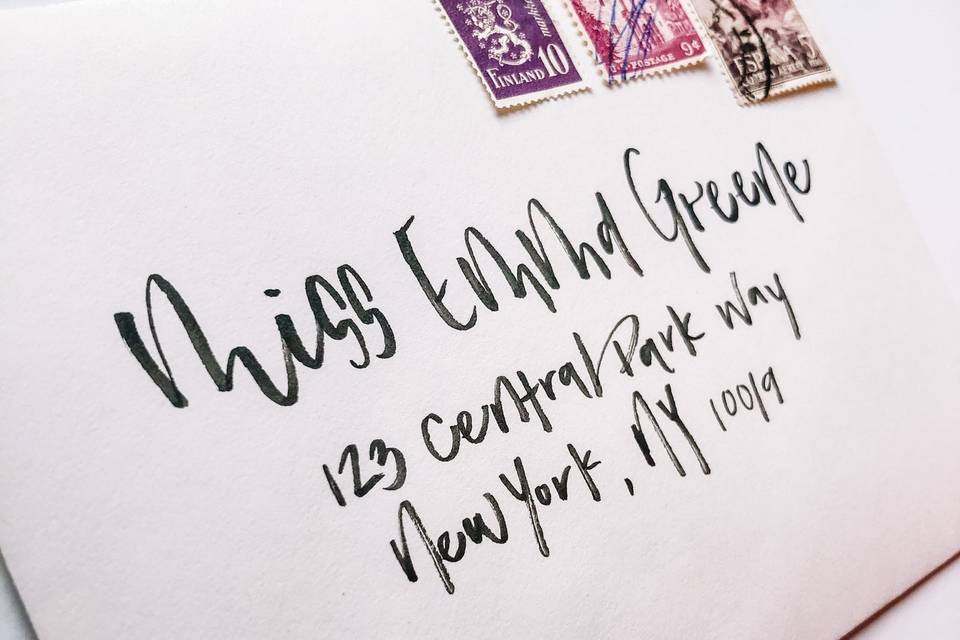 FINLAND 10
markkaa
U.S. POSTAGE 9¢
Miss Emma Greene
123 Central Park Way
New York, NY 10019